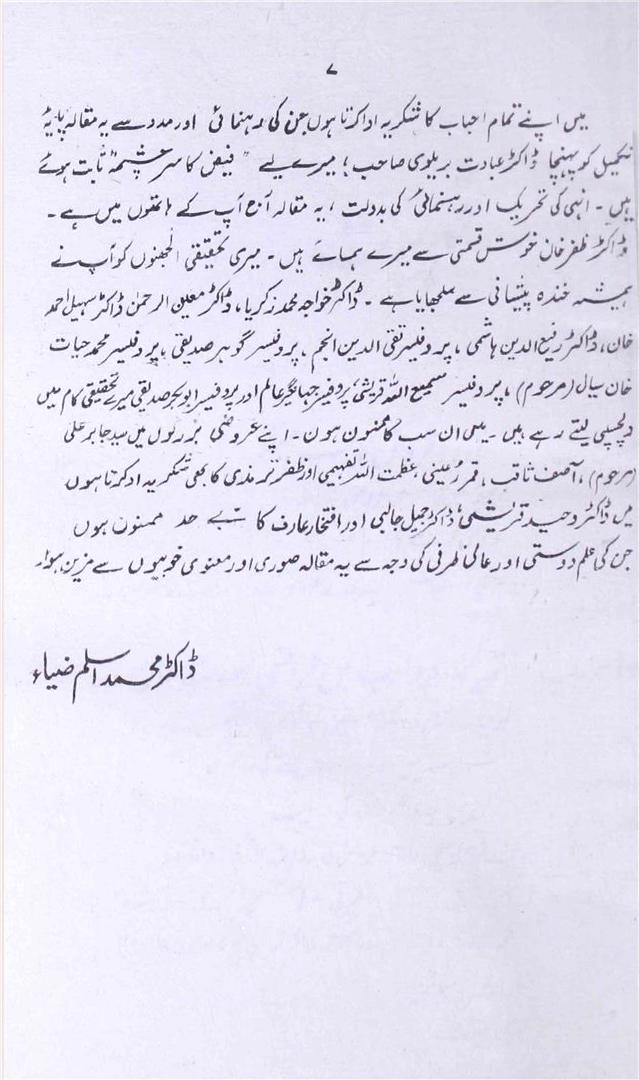 ۷
میں اپنے تمام احباب کا شکریہ ادا کرتا ہوں جن کی رہنمائی اور مدد سے یہ مقالہ پایۂ
تکمیل کو پہنچا ڈاکٹر عبادت بریلوی صاحب؛ میرے لیے "فیض کا سرچشمہ" ثابت ہوئے
ہیں۔ انہی کی تحریک اور رہنمائی کی بدولت، یہ مقالہ آج آپ کے ہاتھوں میں ہے۔
ڈاکٹر ظفر خان خوش قسمتی سے میرے ہمسائے ہیں۔ میری تحقیقی الجھنوں کو آپ نے
ہمیشہ خندہ پیشانی سے سلجھایا ہے۔ ڈاکٹر خواجہ محمد زکریا، ڈاکٹر معین الرحمن ڈاکٹر سہیل احمد
خان، ڈاکٹر رفیع الدین ہاشمی، پروفیسر تقی الدین انجم، پروفیسر گوہر صدیقی، پروفیسر محمد حیات
خان سیال (مرحوم)، پروفیسر سمیع اللہ قریشی، پروفیسر جہانگیر عالم اور پروفیسر ابوبکر صدیقی میرے تحقیقی کام میں
دلچسپی لیتے رہے ہیں۔ میں ان سب کا ممنون ہوں۔ اپنے عروضی بزرگوں میں سید جابر علی
(مرحوم)، آصف ثاقب، قمر رعینی، عظمت اللہ تفہیمی اور ظفر ترمذی کا بھی شکریہ ادا کرتا ہوں
میں ڈاکٹر وحید قریشی، ڈاکٹر جمیل جالبی اور افتخار عارف کا بے حد ممنون ہوں
جن کی علم دوستی اور عالی ظرفی کی وجہ سے یہ مقالہ صوری اور معنوی خوبیوں سے مزین ہوا۔
ڈاکٹر محمد اسلم ضیاء